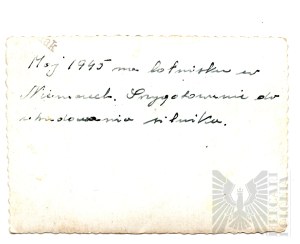 Maj 1945 na lotnisku w
Niemczech. Przygotowanie do
wbudowania silnika.